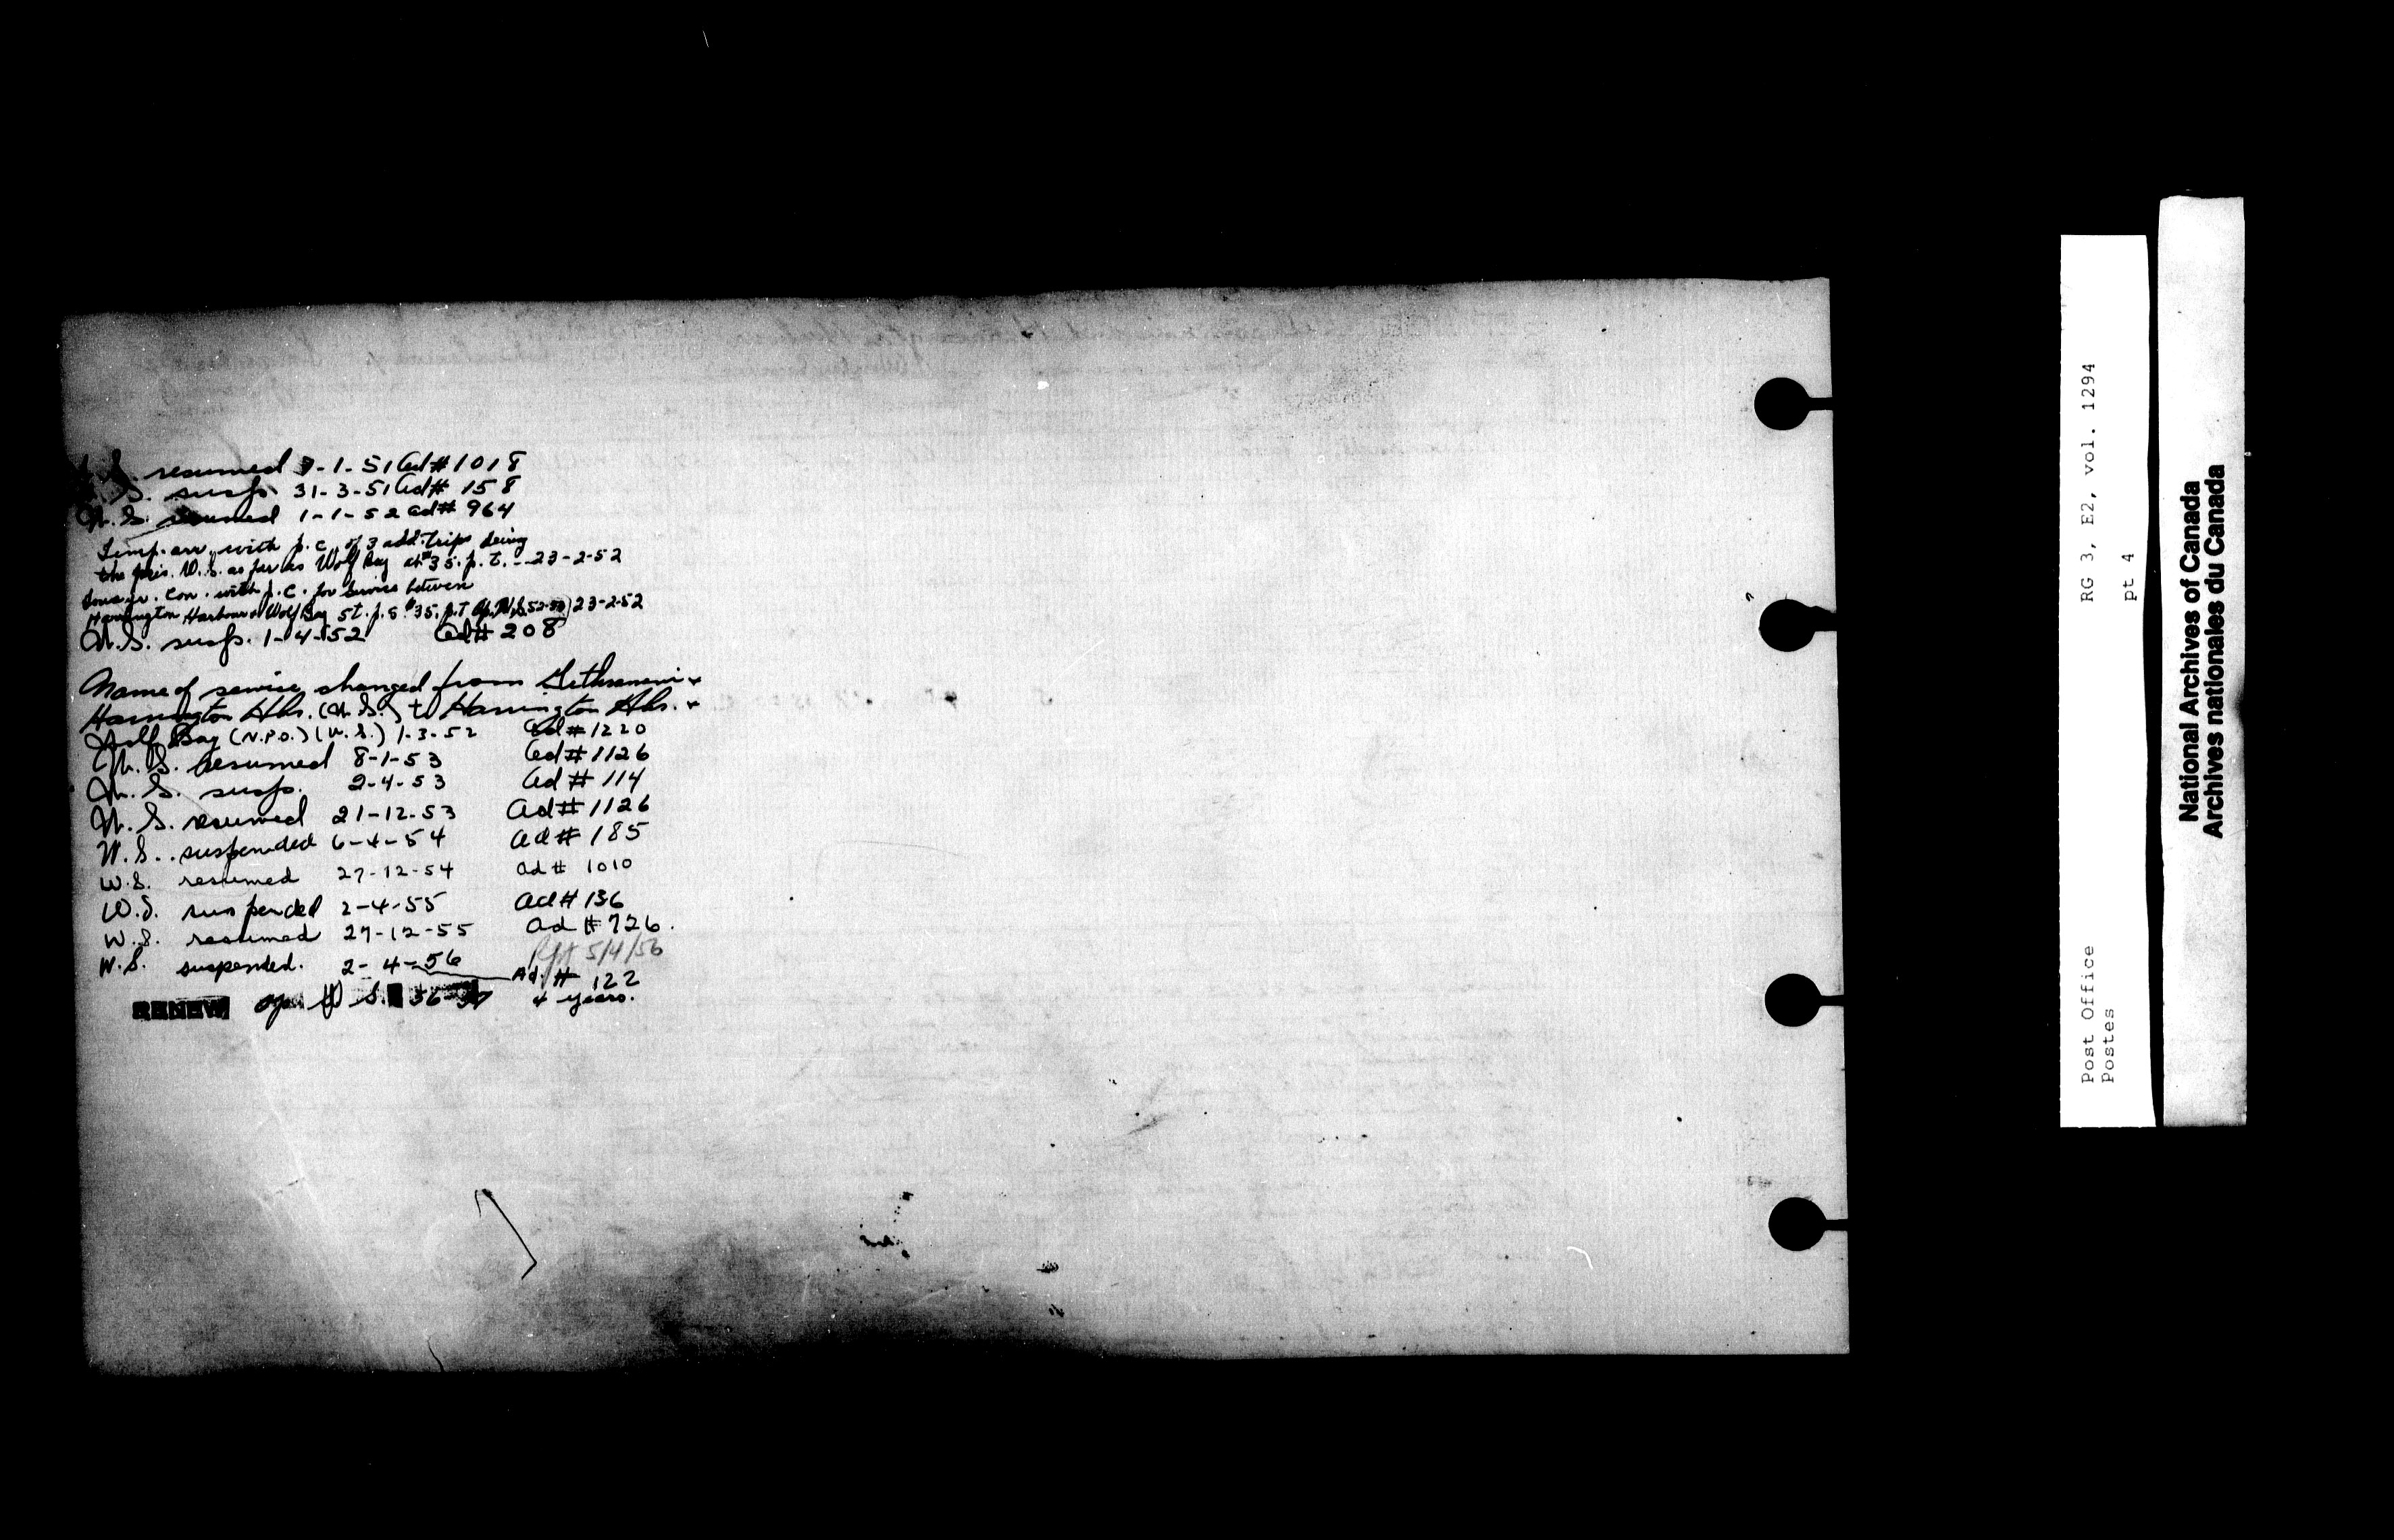 W.S. resumed 9-1-51 Ad# 1018
W.S. susp. 31-3-51 Ad# 158
W.S. resumed 1-1-52 ad# 964
Temp. arr. with p.c. of 3 add. trips during
the pres. W.S. as far as Wolf Bay at $35. p.t. -- 23-2-52
con. with p.c. for service between
Harrington Harbour & Wolf Bay St. p.s. $35. p.T. W.S. 52-53) 23-2-52
W.S. susp. 1-4-52 Ad# 208
Name of service changed from Gethsemani &
Harrington Hbr. (W.S.) to Harrington Hbr. &
Wolf Bay (N.P.O.) (W.S.) 1-3-52 Ad# 1220
W.S. Resumed 8-1-53 Ad# 1126
W.S. susp. 2-4-53 Ad # 114
W.S. resumed 21-12-53 Ad# 1126
W.S. suspended 6-4-54 ad# 185
W.S. resumed 27-12-54 ad # 1010
W.S. suspended 2-4-55 Ad# 136
W.S. resumed 27-12-55 Ad # 726.
5/4/56
W.S. suspended. 2-4-56 Ad. # 122
RENEW W.S. 56-57 4 years.
Post Office RG 3, E2, vol. 1294
Postes pt 4
National Archives of Canada
Archives nationales du Canada